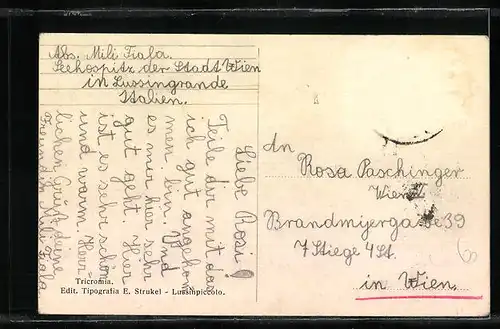 Abs. Mili Fiala.
Seehospitz der Stadt Wien
in Lussingrande
Italien.
Liebe Rosi!
Teile dir mit das
ich gut angekom
men bin. Und
es mir hier sehr
gut geht. Hier
ist es sehr schön
und warm. Herz
lichen Gruß deine
Freundin Mili Fiala
An
Rosa Paschinger
Wien
Brandmyergasse 39
7 Stiege 4 St.
in Wien.
Tricromia.
Edit. Tipografia E. Strukel - Lussinpiccolo.